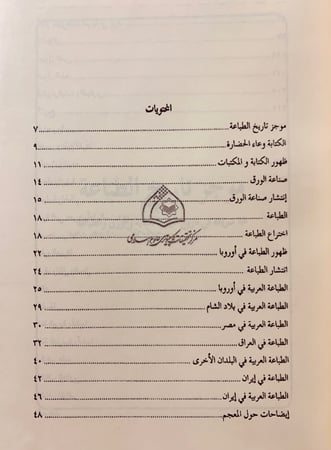 المحتويات
موجز تاريخ الطباعة ٧
الكتابة وعاء الحضارة ٩
ظهور الكتابة و المكتبات ١١
صناعة الورق ١٤
إنتشار صناعة الورق ١٥
الطباعة ١٨
اختراع الطباعة ١٨
ظهور الطباعة في أوروبا ٢٢
انتشار الطباعة ٢٤
الطباعة العربية في أوروبا ٢٥
الطباعة العربية في بلاد الشام ٢٩
الطباعة العربية في مصر ٣٠
الطباعة في العراق ٣٢
الطباعة العربية في البلدان الأخرى ٤٠
الطباعة في إيران ٤٢
الطباعة العربية في إيران ٤٦
إيضاحات حول المعجم ٤٨